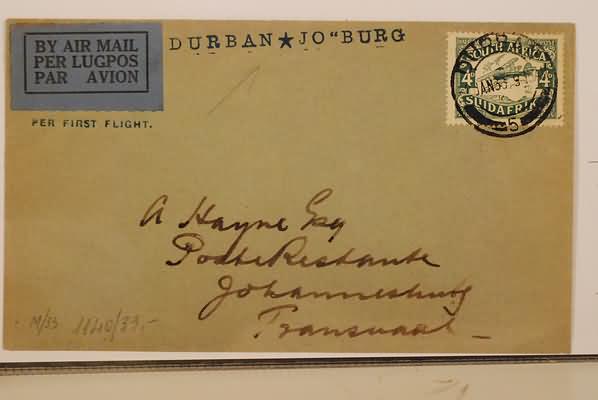 BY AIR MAIL
PER LUGPOS
PAR AVION
DURBAN★JO"BURG
PER FIRST FLIGHT.
SOUTH AFRICA
4D 4D
SUIDAFRIKA
5
A Hayne Esq
Poste Restante
Johannesburg
Transvaal
M/33 1140/33.-